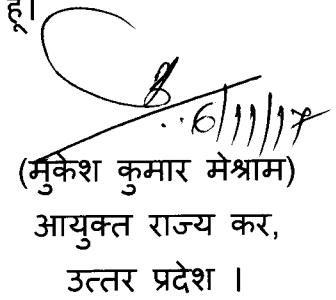 हूँ।
6/11/17
(मुकेश कुमार मेश्राम)
आयुक्त राज्य कर,
उत्तर प्रदेश ।